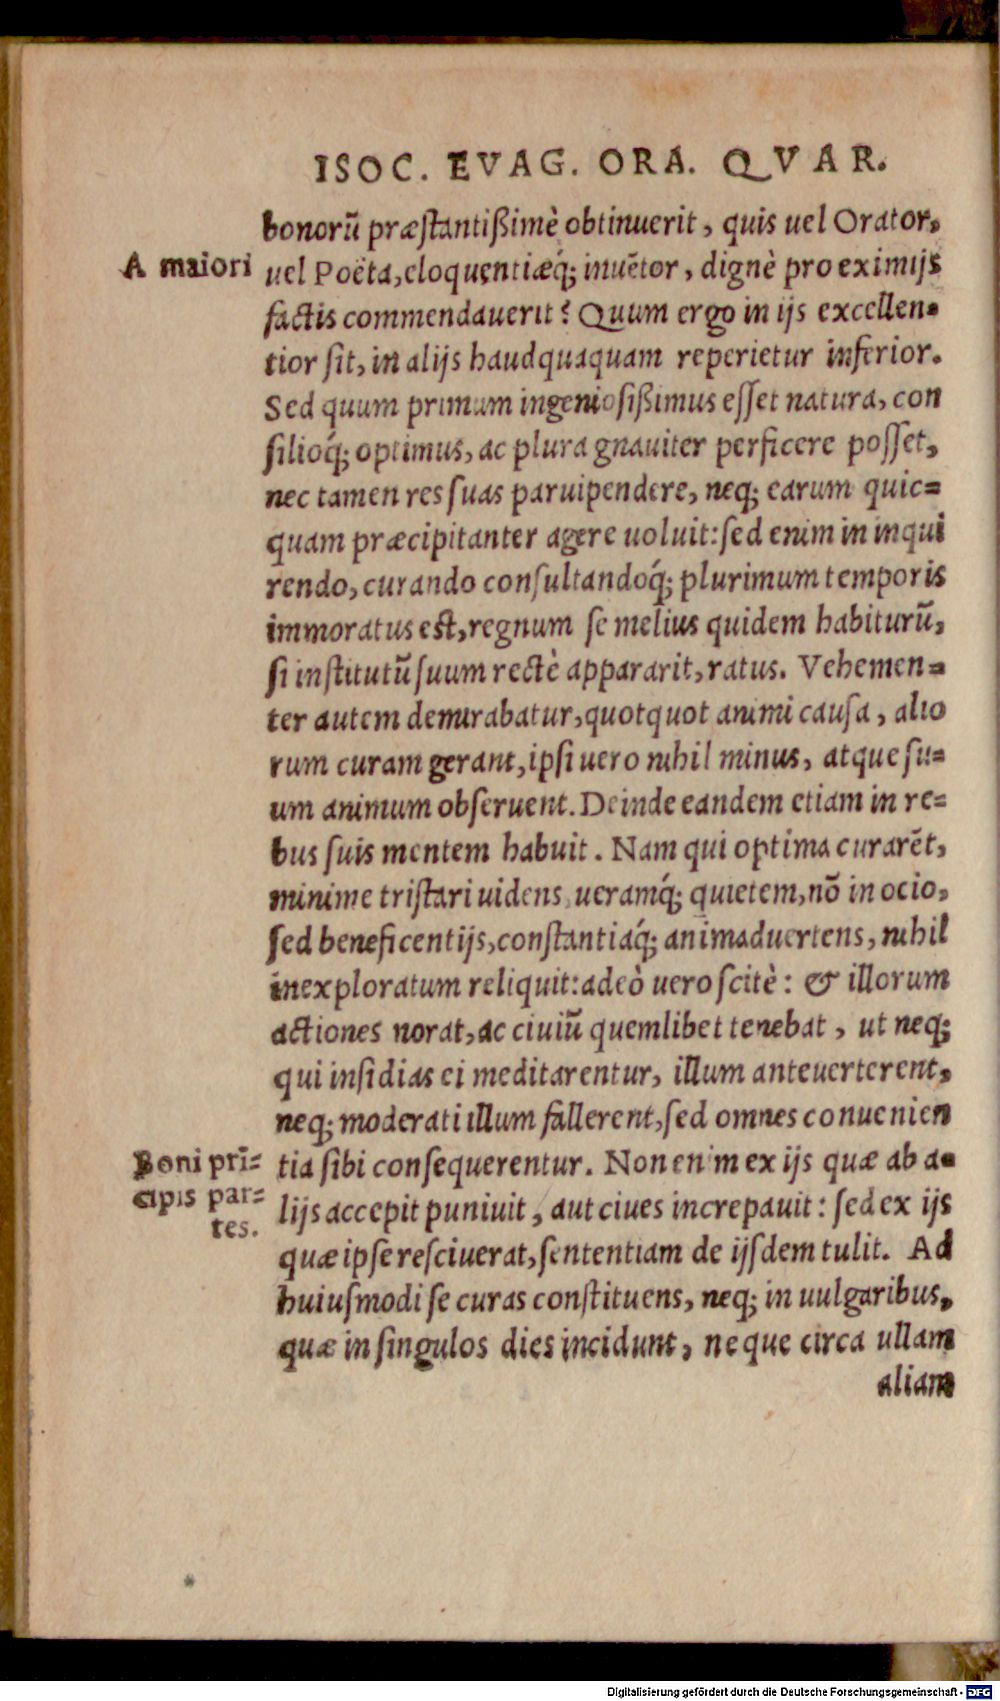 ISOC. EVAG. ORA. QVAR.
bonorũ præstantißimè obtinuerit, quis uel Orator,
A maiori
uel Poëta, eloquentiæq́; inuẽtor, dignè pro eximijs
factis commendauerit? Quum ergo in ijs excellen-
tior sit, in alijs haudquaquam reperietur inferior.
Sed quum primum ingeniosißimus esset natura, con
silioq́; optimus, ac plura gnauiter perficere posset,
nec tamen res suas paruipendere, neq; earum quic=
quam præcipitanter agere uoluit: sed enim in inqui
rendo, curando consultandoq́; plurimum temporis
immoratus est, regnum se melius quidem habiturũ,
si institutũ suum rectè appararit, ratus. Vehemen=
ter autem demirabatur, quotquot animi causa, alio
rum curam gerant, ipsi uero nihil minus, atque su=
um animum obseruent. Deinde eandem etiam in re=
bus suis mentem habuit. Nam qui optima curarẽt,
minime tristari uidens, ueramq́; quietem, nõ in ocio,
sed beneficentijs, constantiáq́; animaduertens, nihil
inexploratum reliquit: adeò uero scitè: & illorum
actiones norat, ac ciuiũ quemlibet tenebat, ut neq;
qui insidias ei meditarentur, illum anteuerterent,
neq; moderati illum fallerent, sed omnes conuenien
Boni prĩ=
cipis par=
tes.
tia sibi consequerentur. Non enim ex ijs quæ ab a-
lijs accepit puniuit, aut ciues increpauit: sed ex ijs
quæ ipse resciuerat, sententiam de ijsdem tulit. Ad
huiusmodi se curas constituens, neq; in uulgaribus,
quæ in singulos dies incidunt, neque circa ullam
aliam
Digitalisierung gefördert durch die Deutsche Forschungsgemeinschaft - DFG